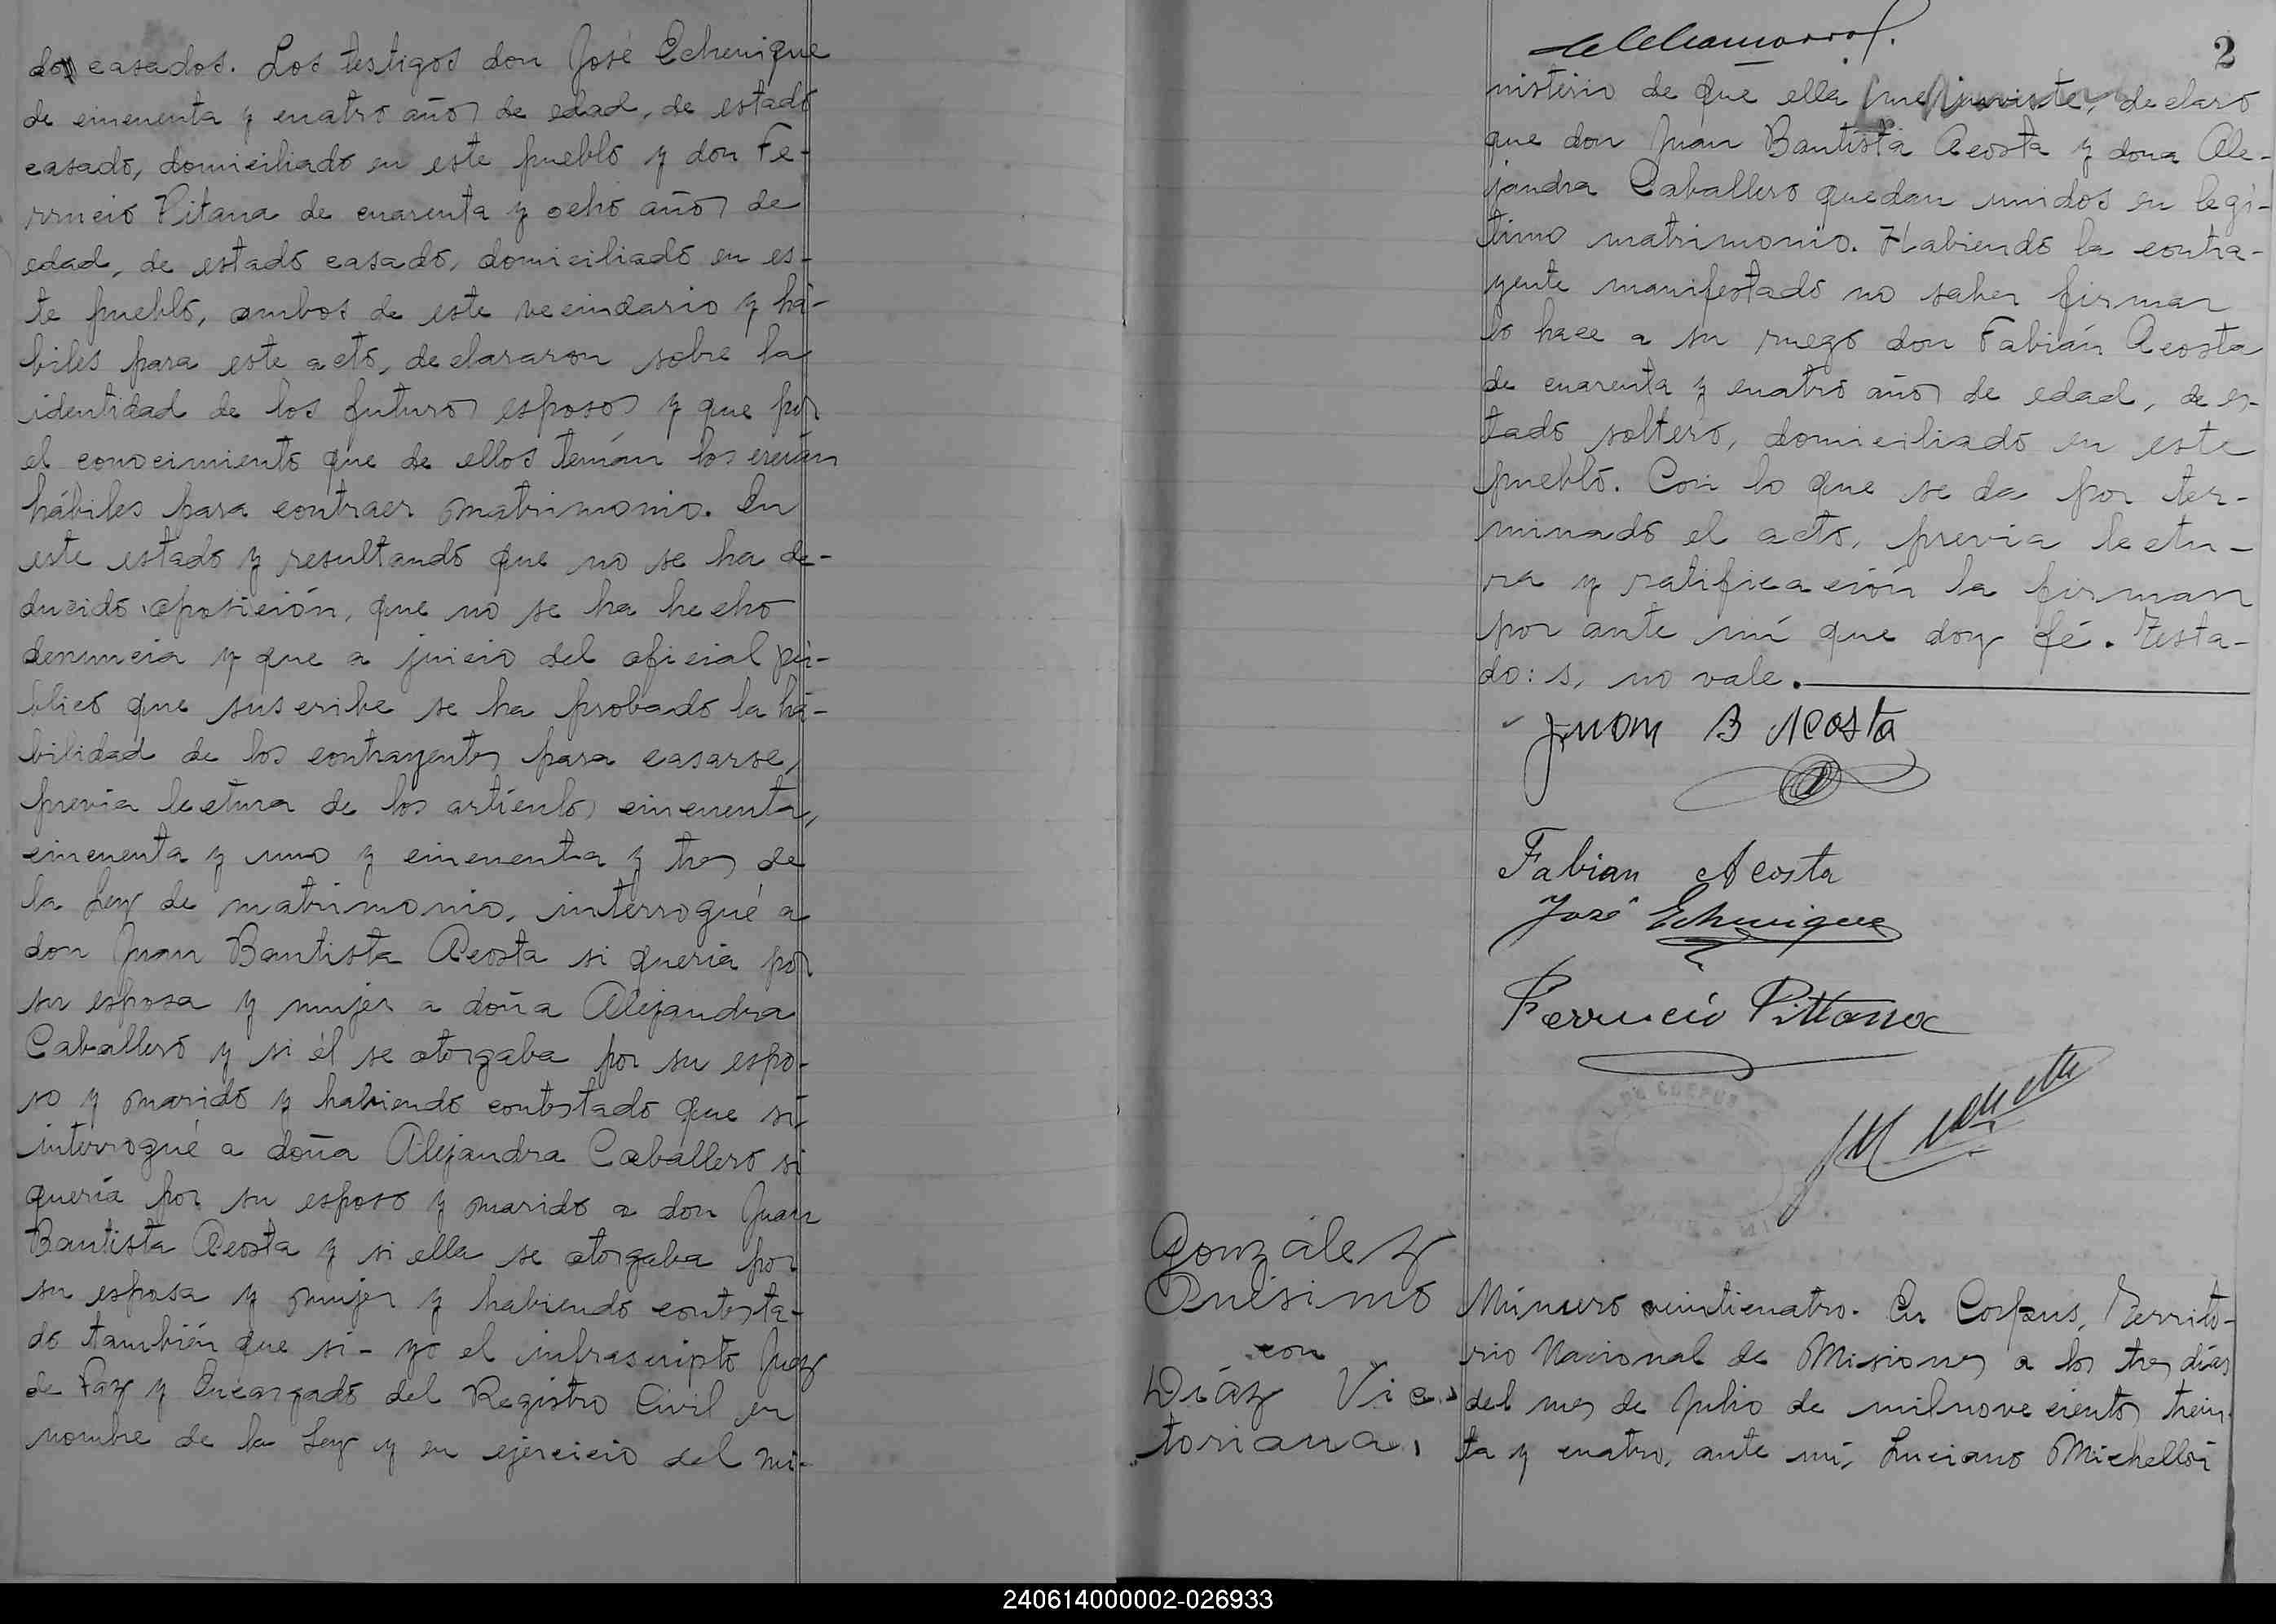 dos casados. Los testigos don José Echenique
de cincuenta y cuatro años de edad, de estado
casado, domiciliado en este pueblo y don Fe-
rrucio Pitana de cuarenta y ocho años de
edad, de estado casado, domiciliado en es-
te pueblo, ambos de este vecindario y há-
biles para este acto, declararon sobre la
identidad de los futuros esposos y que por
el conocimiento que de ellos tenían los creían
hábiles para contraer matrimonio. En
este estado y resultando que no se ha de-
ducido oposición, que no se ha hecho
denuncia y que a juicio del oficial pú-
blico que suscribe se ha probado la há-
bilidad de los contrayentes para casarse,
previa lectura de los artículos cincuenta,
cincuenta y uno y cincuenta y tres de
la Ley de matrimonio, interrogué a
don Juan Bautista Acosta si quería por
su esposa y mujer a doña Alejandra
Caballero y si él se otorgaba por su espo-
so y marido y habiendo contestado que sí,
interrogué a doña Alejandra Caballero si
quería por su esposo y marido a don Juan
Bautista Acosta y si ella se otorgaba por
su esposa y mujer y habiendo contesta-
do también que si - yo el infrascripto Juez
de Paz y Encargado del Registro Civil en
nombre de la Ley y en ejercicio del mi-
2
nisterio de que ella me inviste, declaro
que don Juan Bautista Acosta y dona Ale-
jandra Caballero quedan unidos en legí-
timo matrimonio. Habiendo la contra-
yente manifestado no saber firmar
lo hace a su ruego don Fabián Acosta
de cuarenta y cuatro años de edad, de es-
tado soltero, domiciliado en este
pueblo. Con lo que se da por ter-
minado el acto, previa lectu-
ra y ratificación la firman
por ante mí que doy fé. Testa-
do: s, no vale.
Juan B Acosta
Fabian Acosta
José Echenique
Ferrucio Pittana
González
Onésimo
con
Díaz Vic-
toriana.
Número veinticuatro. En Corpus, Territo-
rio Nacional de Misiones a los tres días
del mes de Julio de mil novecientos trein-
ta y cuatro, ante mí, Luciano Michelloi
240614000002-026933